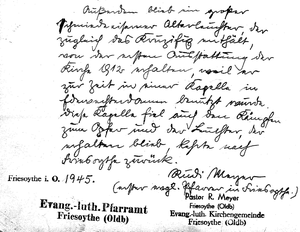 Außerdem blieb ein großer
schmiedeeiserner Altarleuchter der
zugleich das Kruzifix enthält
von der ersten Ausstattung der
Kirche 1912 erhalten, weil er
zur Zeit in einer Kapelle in
Edewechterdamm benutzt wurde.
Diese Kapelle fiel auch den Kämpfen
zum Opfer und der Leuchter, der
erhalten blieb kehrte nach
Friesoythe zurück.
Friesoythe i. O. 1945. Rudi Meyer
(erster evgl. Pfarrer in Friesoythe.)
Evang.-luth. Pfarramt
Friesoythe (Oldb)
Pastor R. Meyer
Friesoythe (Oldb)
Evang.-luth. Kirchengemeinde
Friesoythe (Oldb)